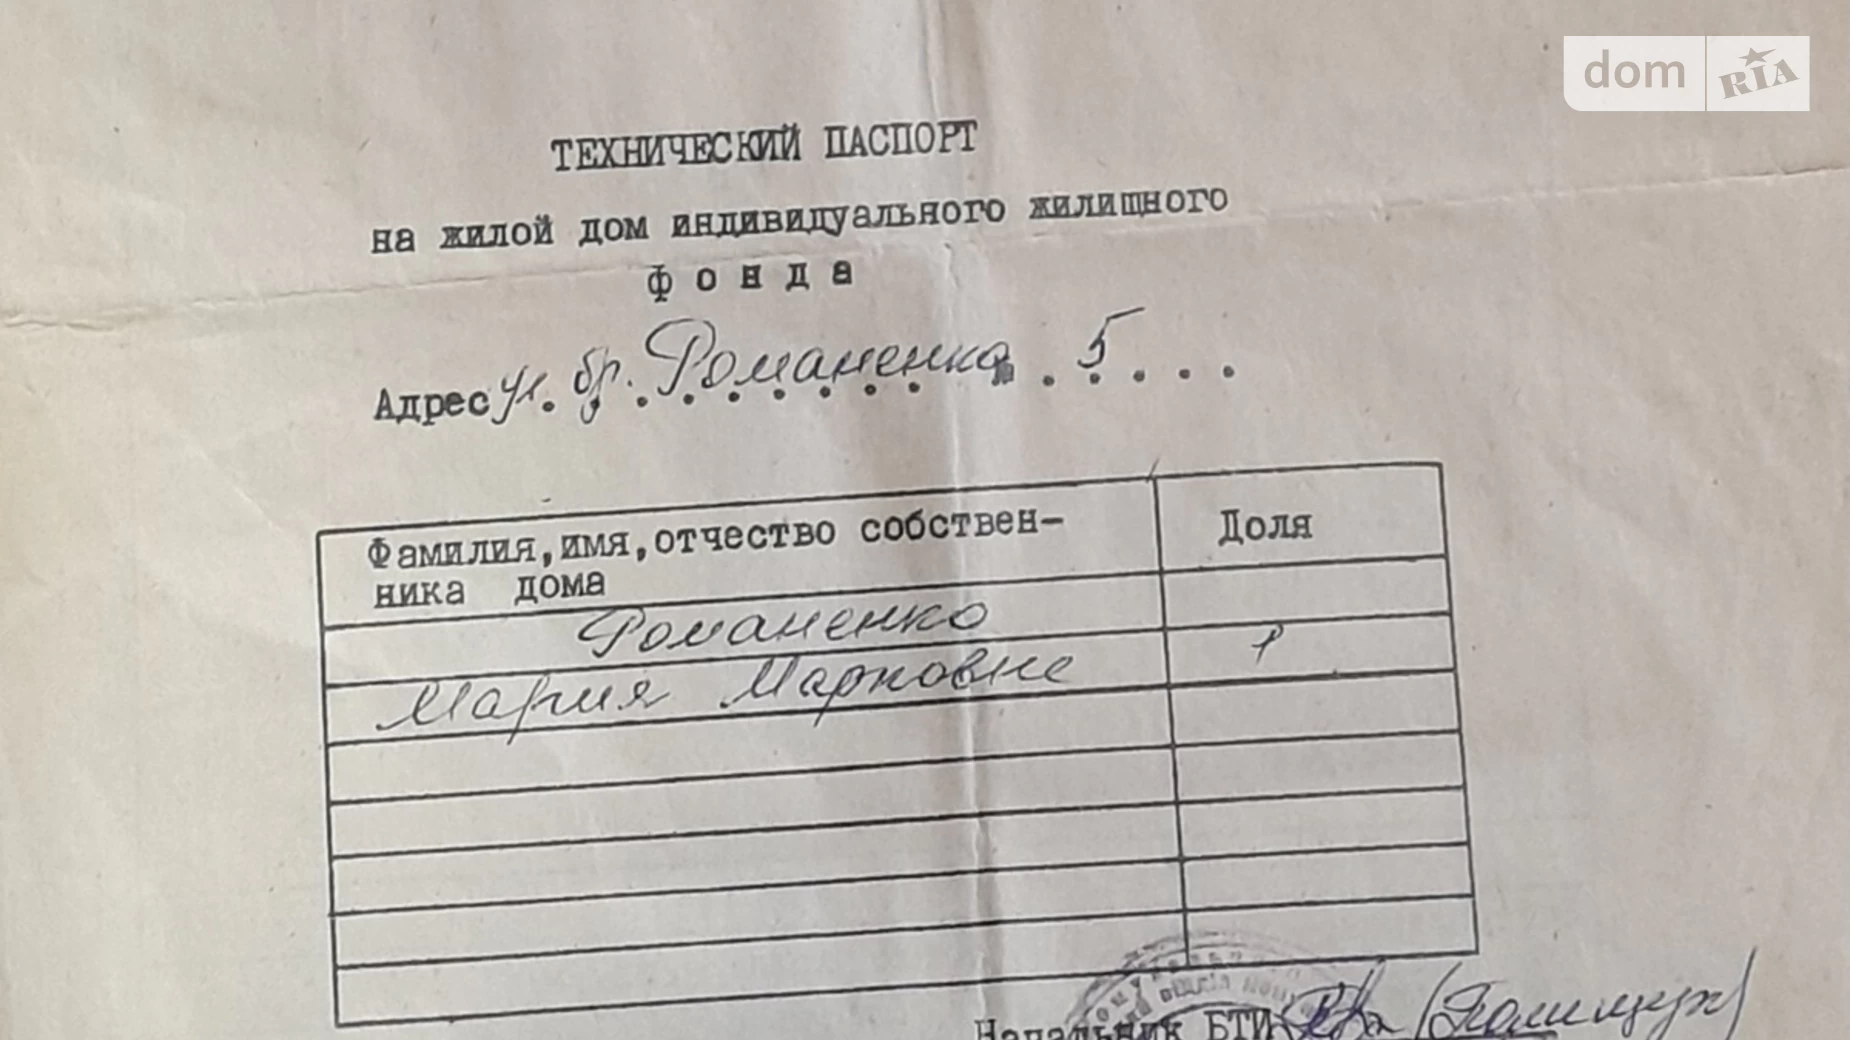 dom RIA
ТЕХНИЧЕСКИЙ ПАСПОРТ
на жилой дом индивидуального жилищного
фонда
Адрес ул. бр. Романенко 5
Фамилия, имя, отчество собствен-
ника дома
Доля
Романенко
Мария Марковне
1
Начальник БТИ